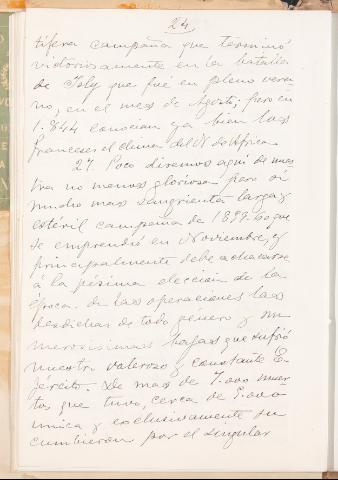 24
tífera campaña que terminó
victoriosamente en la batalla
de Isly que fué en pleno vera
no, en el mes de Agosto, pero en
1.844 conocian ya bien los
Franceses el clima del N. de Africa.
27. Poco diremos aquí de nues
tra no menos gloriosa pero si
mucho mas sangrienta larga y
estéril campaña de 1859-60 que
se emprendió en Noviembre, y
principalmente debe achacarse
á la pésima eleccion de la
época de las operaciones las
desdichas de todo género y nu
merosisimas bajas que sufrió
nuestro valeroso y constante E
jército. De mas de 7.000 muer
tos que tuvo, cerca de 5.000
unica y exclusivamente su
cumbieron por el singular